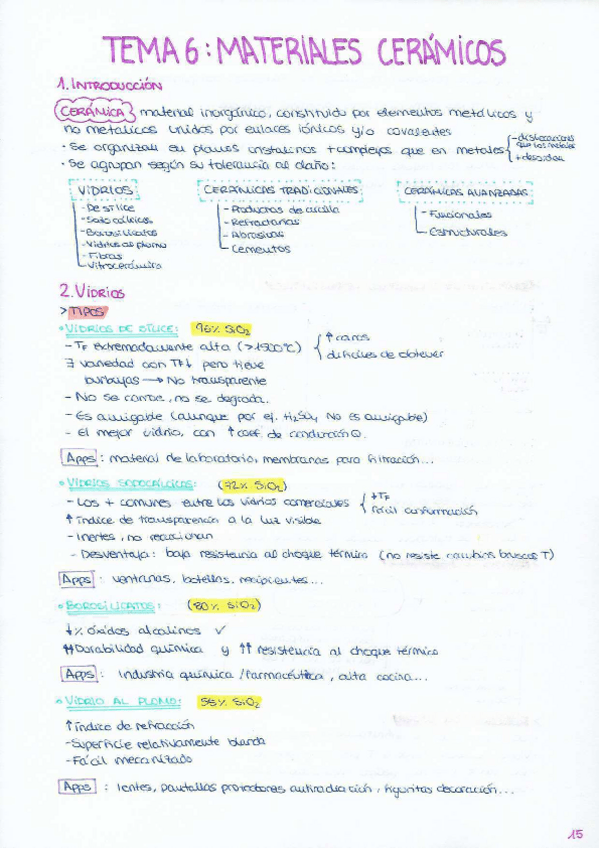 TEMA 6: MATERIALES CERÁMICOS
1. INTRODUCCIÓN
CERÁMICA material inorgánico, constituido por elementos metálicos y
no metálicos unidos por enlaces iónicos y/o covalentes
· Se organizan en planos cristalinos + complejos que en metales - dislocaciones que los metales
+ desorden
· Se agrupan según su tolerancia al daño:
VIDRIOS
- De sílice
- Sodocálcicos
- Borosilicatos
- Vidrios al plomo
- Fibras
- Vitrocerámica
CERÁMICAS TRADICIONALES
- Productos de arcilla
- Refractarias
- Abrasivas
- Cementos
CERÁMICAS AVANZADAS
- Funcionales
- Estructurales
2. VIDRIOS
> TIPOS
· VIDRIOS DE SÍLICE: 96% SiO2
- TF extremadamente alta (>1500°C) ↑ caros
difíciles de obtener
∃ variedad con TF↓ pero tiene
burbujas → No transparente
- No se corroe, no se degrada.
- Es amigable (aunque por ej. H2SO4 no es amigable)
- El mejor vidrio, con ↑ coef. de
Apps: material de laboratorio, membranas para filtración...
· VIDRIOS SODOCÁLCICOS: (72% SiO2)
- Los + comunes entre los vidrios comerciales ↓TF
fácil conformación
↑ índice de transparencia a la luz visible
- Inertes, no reaccionan
- Desventaja: baja resistencia al choque térmico (no resiste cambios bruscos T)
Apps: ventanas, botellas, recipientes...
· BOROSILICATOS: (80% SiO2)
↓% óxidos alcalinos ✓
↑↑ Durabilidad química y ↑↑ resistencia al choque térmico
Apps: Industria química / farmacéutica, alta cocina...
· VIDRIO AL PLOMO: 55% SiO2
↑ Índice de refracción
- Superficie relativamente blanda
- Fácil mecanizado
Apps: lentes, pantallas protectoras antiradiación, figuritas decoración...
15